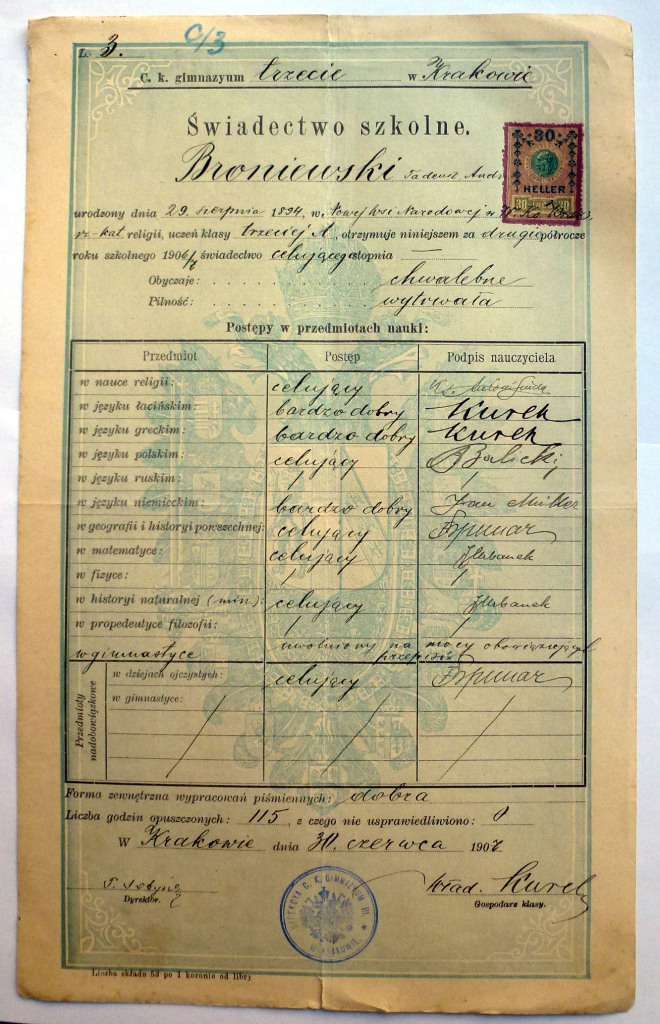 L. 3. C/3
C. k. gimnazyum trzecie w Krakowie
Świadectwo szkolne.
30
HELLER
30 30
Broniewski Tadeusz
urodzony dnia 29. sierpnia 1894, w Nowej Wsi Narodowej
rz-kat religii, uczeń klasy trzeciej A, otrzymuje niniejszem za drugie półrocze
roku szkolnego 1906/7 świadectwo celującego stopnia —
Obyczaje: chwalebne
Pilność: wytrwała
Postępy w przedmiotach nauki:
Przedmiot Postęp Podpis nauczyciela
w nauce religii: celujący Ks.
w języku łacińskim: bardzo dobry Kurek
w języku greckim: bardzo dobry Kurek
w języku polskim: celujący Balicki
w języku ruskim: / /
w języku niemieckim: bardzo dobry Jan Müller
w geografii i historyi powszechnej: celujący
w matematyce: celujący
w fizyce: / /
w historyi naturalnej (min.): celujący
w propedeutyce filozofii: /
w gimnastyce uwolniony na mocy obowiązujących
przepisów
Przedmioty nadobowiązkowe
w dziejach ojczystych: celujący
w gimnastyce: / / /
Forma zewnętrzna wypracowań piśmiennych: dobra
Liczba godzin opuszczonych: 115, z czego nie usprawiedliwiono: 0
W Krakowie dnia 30. czerwca 1907
Wład. Kurek
Dyrektor. Gospodarz klasy.
DYREKCYA C. K. GIMNAZYUM III. W KRAKOWIE.
Liczba składu 53 po 1 koronie od libry